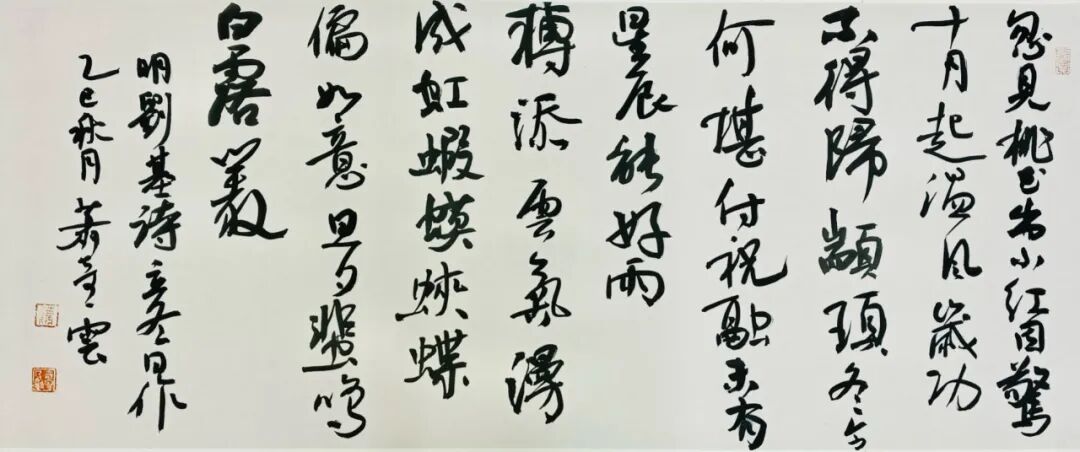 忽見桃花出小紅因驚
十月起溫風歲功
不得歸顓頊冬令
何堪付祝融未有
星辰能好雨
轉添雲氣漫
成虹蝦蟆蛺蝶
偏如意旦夕蜚鳴
白露叢
明劉基詩立冬日作
乙巳秋月雲